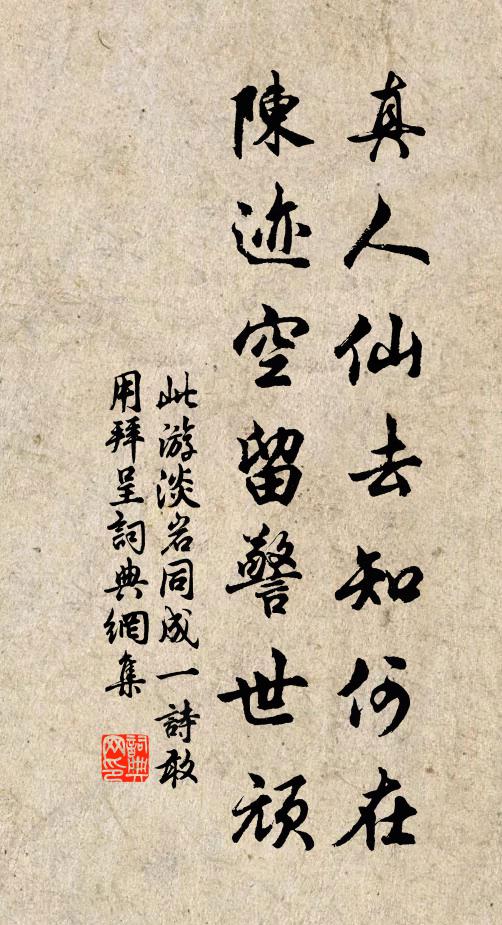 真人仙去知何在
陳迹空留警世頑
此游淡岩同成一詩敢
用拜呈詞典網集
詞典
网印